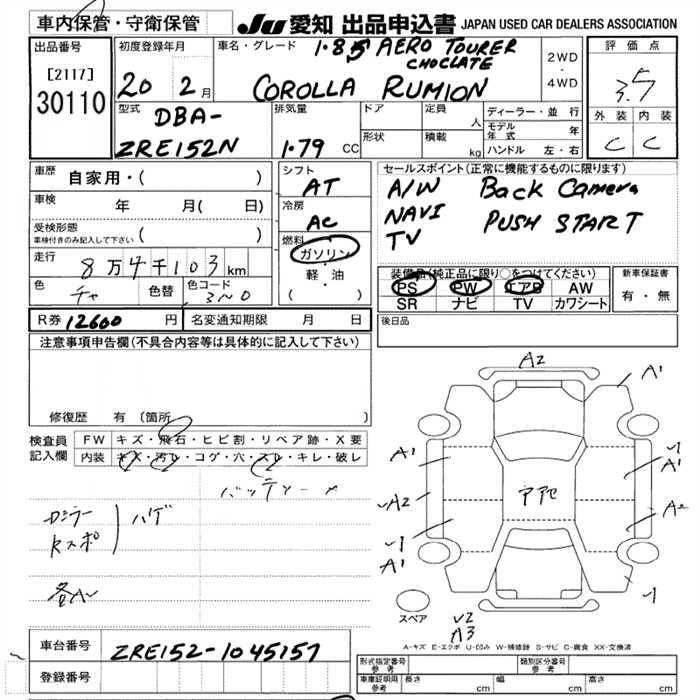 車内保管・守衛保管
JU 愛知 出品申込書 JAPAN USED CAR DEALERS ASSOCIATION
出品番号
[2117]
30110
初度登録年月
20 2月
車名・グレード
1.8S AERO TOURER
CHOCLATE
COROLLA RUMION
2WD
・
4WD
評価点
3.5
外装 内装
C C
型式
DBA-
ZRE152N
排気量
1.79 CC
ドア
定員 人
形状
積載 kg
ディーラー・並行
モデル年式 年
ハンドル 左・右
車歴 自家用・( )
車検 年 月( 日)
受検形態
車検付きのみ記入して下さい ( )
走行 8万4千103km
色 チャ 色替 色コード 3N0
シフト
AT
冷房
AC
燃料
ガソリン
・
軽・油
( )
セールスポイント(正常に機能するものに限ります)
A/W Back Camera
NAVI PUSH START
TV
装備品(純正品に限り○をつけてください)
PS PW エアB AW
SR ナビ TV カワシート
新車保証書
有・無
R券 12600 円 名変通知期限 月 日
後日品
注意事項申告欄(不具合内容等は具体的に記入して下さい)
修復歴 有(箇所 )
検査員記入欄
FW キズ・飛石・ヒビ割・リペア跡・X要
内装 キズ・汚レ・コゲ・穴・スレ・キレ・破レ
バッテリーメ
Rスポ
ハゲ
各A
A2
A1
A1
A2
A2
スペア
A3
A-キズ E-エクボ U-凹み W-補修跡 S-サビ C-腐食 XX-交換済
車台番号 ZRE152-1045157
登録番号
形式指定番号 参考
類別区分番号 参考
車庫証明用 参考
長さ cm 幅 cm 高さ cm